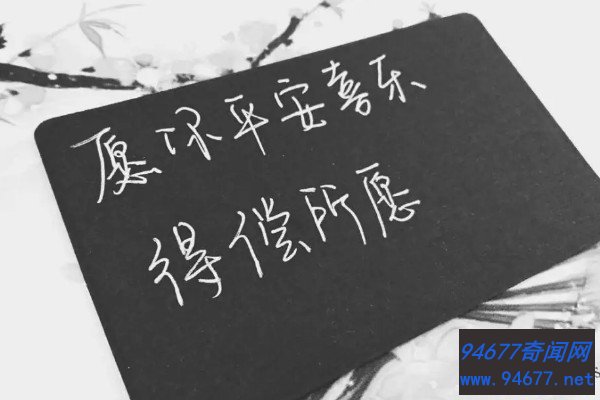 愿你平安喜乐
得偿所愿
94677奇闻网
www.94677.net